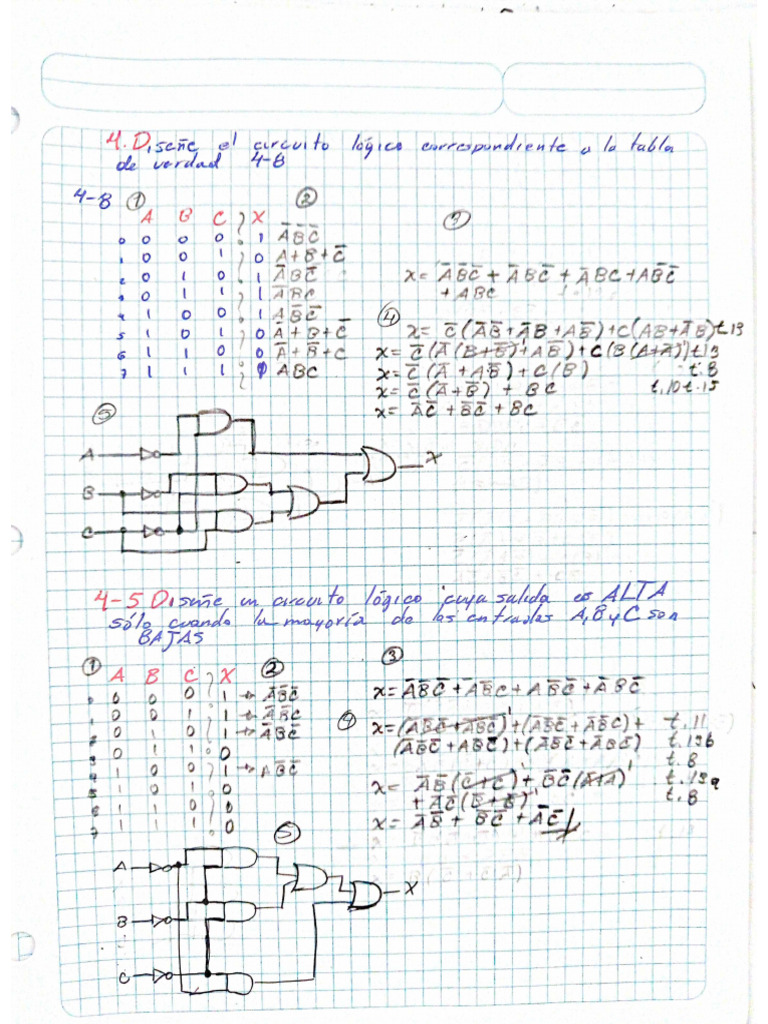 4. Diseñe el circuito lógico correspondiente a la tabla
de verdad 4-8
4-8 ① ② ③
A B C X
0 0 0 0 1 A̅B̅C̅
1 0 0 1 0 A+B+C̅
2 0 1 0 1 A̅BC̅
3 0 1 1 1 A̅BC
4 1 0 0 1 AB̅C̅
5 1 0 1 0 A̅+B+C̅
6 1 1 0 0 A̅+B̅+C
7 1 1 1 1 ABC
x= A̅B̅C̅ + A̅BC̅ + A̅BC + AB̅C̅
+ ABC
④ x= C̅(A̅B̅+A̅B+AB̅)+C(AB+A̅B) t.13
x= C̅(A̅(B+B̅)+AB̅)+C(B(A+A̅)) t.13
x= C̅(A̅+AB̅)+C(B) t.8
x= C̅(A̅+B̅) + BC t.10 t.15
x= A̅C̅ + B̅C̅ + BC
⑤
A
B
C
X
4-5 Diseñe un circuito lógico cuya salida es ALTA
sólo cuando la mayoría de las entradas A, B y C son
BAJAS
① A B C X ② ③
0 0 0 0 1 → A̅B̅C̅
1 0 0 1 1 → A̅B̅C
2 0 1 0 1 → A̅BC̅
3 0 1 1 0
4 1 0 0 1 → AB̅C̅
5 1 0 1 0
6 1 1 0 0
7 1 1 1 0
x= A̅B̅C̅ + A̅B̅C + AB̅C̅ + A̅BC̅
④ x= (A̅B̅C̅+A̅B̅C)+(A̅B̅C̅+AB̅C̅)+ t.11
(A̅B̅C̅+A̅BC̅)+(A̅B̅C̅+A̅BC̅) t.13b
t.8
x= A̅B̅(C̅+C)¹+B̅C̅(A̅+A)¹ t.13a
+ A̅C̅(B̅+B)¹ t.8
x= A̅B̅ + B̅C̅ + A̅C̅
⑤
A
B
C
X